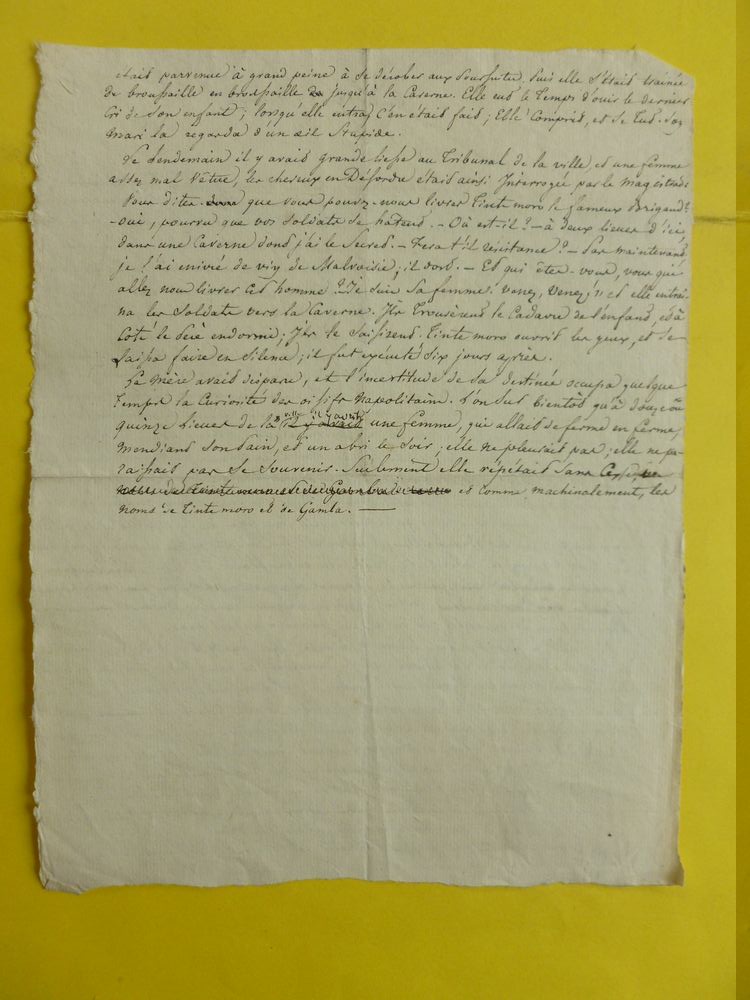 était parvenue à grand peine à se dérober aux poursuites. Puis elle s'était trainée
de broussaille en broussaille jusqu'à la Caverne. Elle eut le temps d'ouir le dernier
Cri de son enfant; lorsqu'elle entra, c'en était fait; Elle comprit, et se tut. Son
mari la regarda d'un œil stupide.
Le lendemain il y avait grande liesse au Tribunal de la ville, et une femme
assez mal vêtue, les cheveux en Désordre était ainsi Interrogée par le magistrat
Vous dites que vous pouvez nous livrer Tinte moro le fameux Brigand?
- oui, pourvu que vos soldats se hatent. - Où est-il? - à deux lieues d'ici
dans une Caverne dont j'ai le Secret. - Fera t'il resistance? - Pas maintenant
je l'ai enivré de vin de Malvoisie; il dort. - Et qui êtes-vous, vous qui
allez nous livrer cet homme? Je suis sa femme. Venez, Venez, et elle entrai-
na les Soldats vers la Caverne. Ils Trouvèrent le Cadavre de l'enfant, et à
Coté le Père endormi; Ils le saisirent. Tinte moro ouvrit les yeux, et se
laissa faire en silence; il fut exécuté six jours après.
La Mère avait disparu, et l'incertitude de sa destinée occupa quelque
Temps la Curiosité des oisifs napolitains. L'on sut bientôt qu'à douze ou
quinze lieues de la ville il y avait une femme, qui allait de ferme en ferme,
mendiant son Pain, et un abri le soir; elle ne pleurait pas; elle ne pa-
raissait pas se souvenir. Seulement elle répétait Sans Cesse
et comme machinalement, les
noms de Tinte moro et de Gamla. —